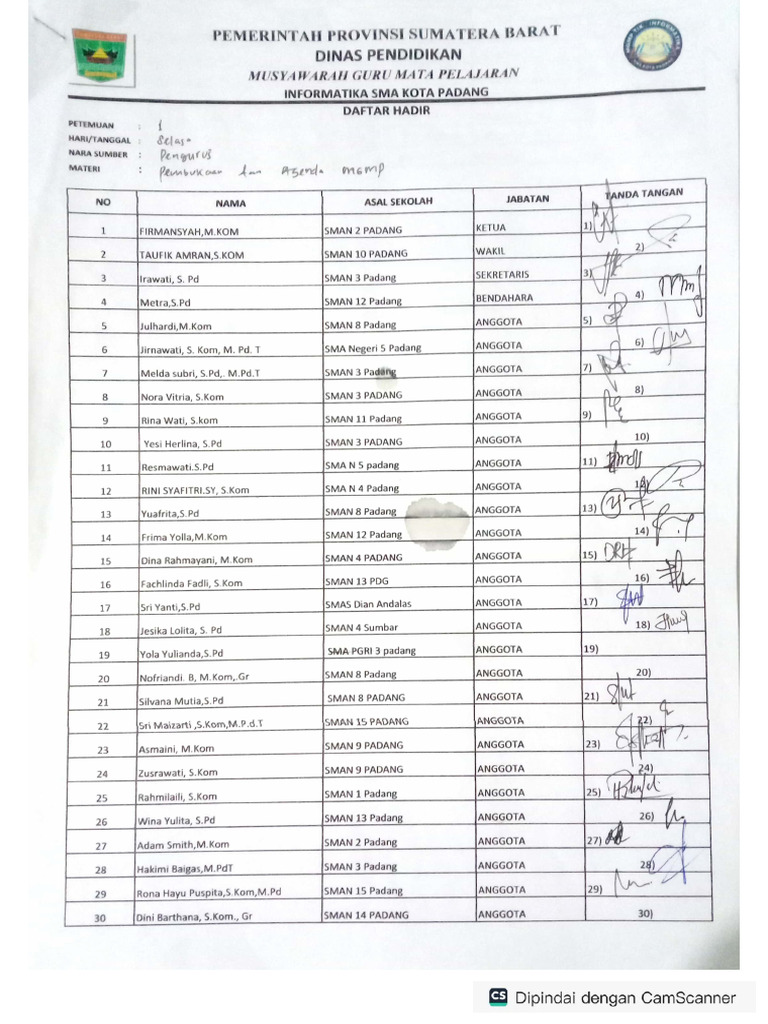 PEMERINTAH PROVINSI SUMATERA BARAT
DINAS PENDIDIKAN
MUSYAWARAH GURU MATA PELAJARAN
INFORMATIKA SMA KOTA PADANG
DAFTAR HADIR
PETEMUAN : 1
HARI/TANGGAL : Selasa
NARA SUMBER : Pengurus
MATERI : Pembukaan dan Agenda MGMP
NO NAMA ASAL SEKOLAH JABATAN TANDA TANGAN
1 FIRMANSYAH,M.KOM SMAN 2 PADANG KETUA 1)
2 TAUFIK AMRAN,S.KOM SMAN 10 PADANG WAKIL 2)
3 Irawati, S. Pd SMAN 3 Padang SEKRETARIS 3)
4 Metra,S.Pd SMAN 12 Padang BENDAHARA 4)
5 Julhardi,M.Kom SMAN 8 Padang ANGGOTA 5)
6 Jirnawati, S. Kom, M. Pd. T SMA Negeri 5 Padang ANGGOTA 6)
7 Melda subri, S.Pd,. M.Pd.T SMAN 3 Padang ANGGOTA 7)
8 Nora Vitria, S.Kom SMAN 3 PADANG ANGGOTA 8)
9 Rina Wati, S.kom SMAN 11 Padang ANGGOTA 9)
10 Yesi Herlina, S.Pd SMAN 3 PADANG ANGGOTA 10)
11 Resmawati.S.Pd SMA N 5 padang ANGGOTA 11)
12 RINI SYAFITRI.SY, S.Kom SMA N 4 Padang ANGGOTA 12)
13 Yuafrita,S.Pd SMAN 8 Padang ANGGOTA 13)
14 Frima Yolla,M.Kom SMAN 12 Padang ANGGOTA 14)
15 Dina Rahmayani, M.Kom SMAN 4 PADANG ANGGOTA 15)
16 Fachlinda Fadli, S.Kom SMAN 13 PDG ANGGOTA 16)
17 Sri Yanti,S.Pd SMAS Dian Andalas ANGGOTA 17)
18 Jesika Lolita, S. Pd SMAN 4 Sumbar ANGGOTA 18)
19 Yola Yulianda,S.Pd SMA PGRI 3 padang ANGGOTA 19)
20 Nofriandi. B, M.Kom,.Gr SMAN 8 Padang ANGGOTA 20)
21 Silvana Mutia,S.Pd SMAN 8 PADANG ANGGOTA 21)
22 Sri Maizarti ,S.Kom,M.P.d.T SMAN 15 PADANG ANGGOTA 22)
23 Asmaini, M.Kom SMAN 9 PADANG ANGGOTA 23)
24 Zusrawati, S.Kom SMAN 9 PADANG ANGGOTA 24)
25 Rahmilaili, S.Kom SMAN 1 Padang ANGGOTA 25)
26 Wina Yulita, S.Pd SMAN 13 Padang ANGGOTA 26)
27 Adam Smith,M.Kom SMAN 2 Padang ANGGOTA 27)
28 Hakimi Baigas,M.PdT SMAN 3 Padang ANGGOTA 28)
29 Rona Hayu Puspita,S.Kom,M.Pd SMAN 15 Padang ANGGOTA 29)
30 Dini Barthana, S.Kom., Gr SMAN 14 PADANG ANGGOTA 30)
CS Dipindai dengan CamScanner